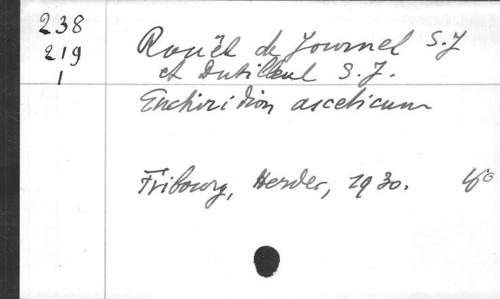 238
219
1
Rouët de Journel S.J
et Dutilleul S.J.
Enchiridion asceticum
Fribourg, Herder, 1930. 4º